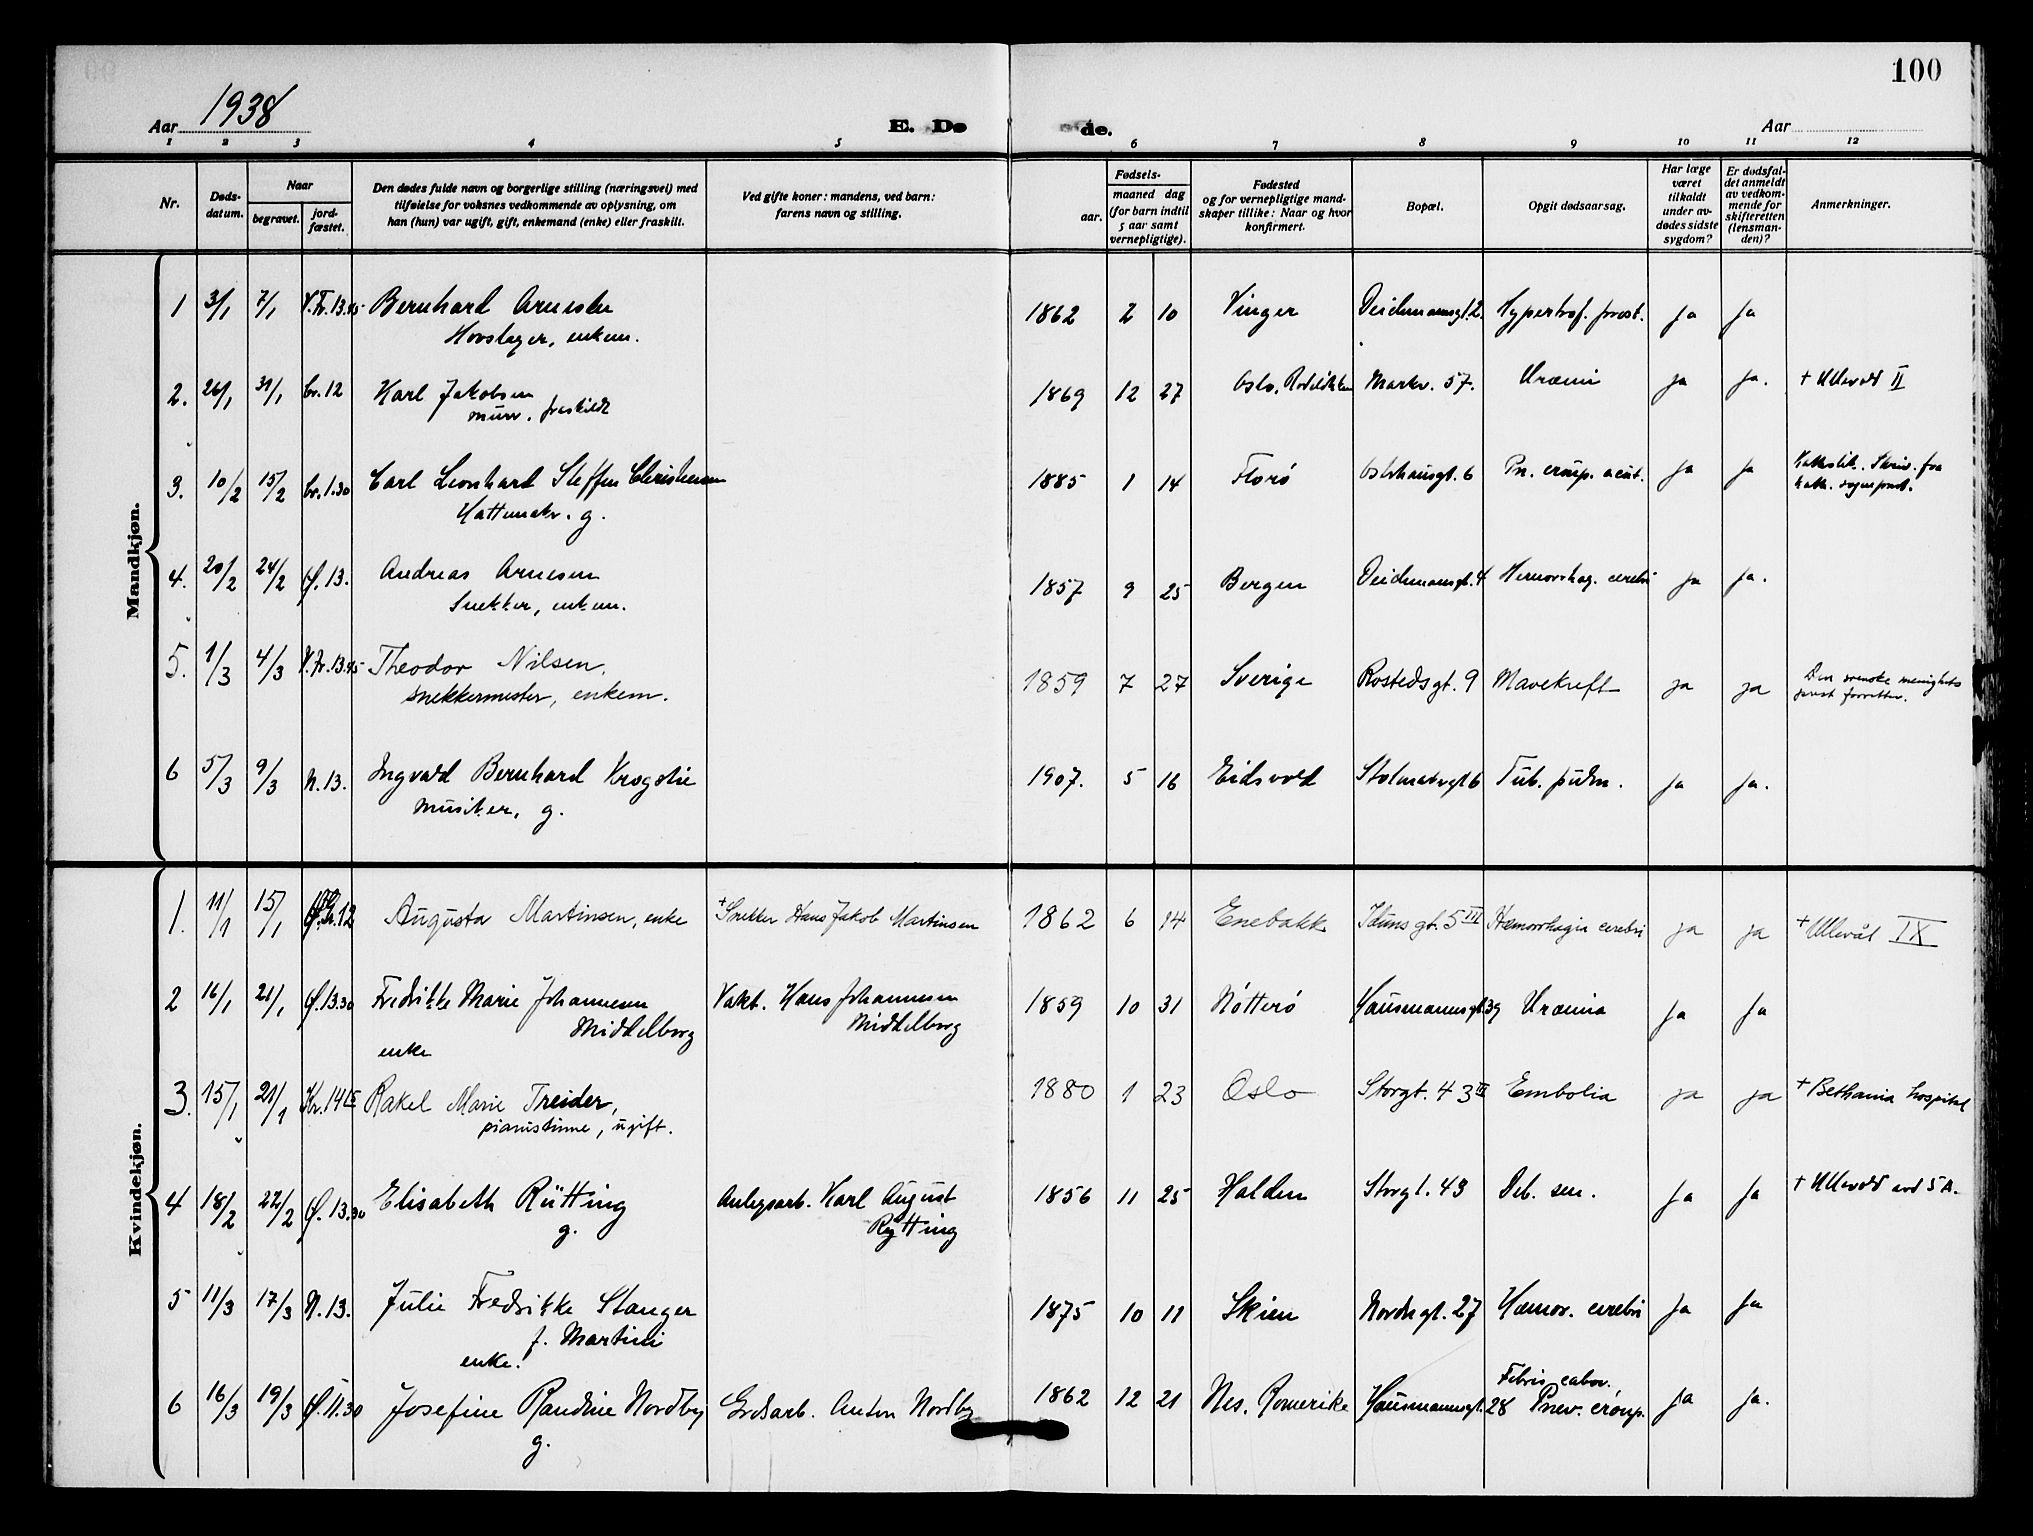 100
Aar 1938
E. Dø de.
Aar
1 2 3 4 5 6 7 8 9 10 11 12
Nr.
Døds-
datum.
Naar
begravet.
jord-
fæstet.
Den dødes fulde navn og borgerlige stilling (næringsvei) med
tilføielse for voksnes vedkommende av oplysning, om
han (hun) var ugift, gift, enkemand (enke) eller fraskilt.
Ved gifte koner: mandens, ved barn:
farens navn og stilling.
Fødsels-
aar.
maaned dag
(for barn indtil
5 aar samt
vernepligtige).
Fødested
og for vernepligtige mand-
skaper tillike: Naar og hvor
konfirmert.
Bopæl.
Opgit dødsaarsag.
Har læge
været
tilkaldt
under av-
dødes sidste
sygdom?
Er dødsfal-
det anmeldt
av vedkom-
mende for
skifteretten
(lensman-
den)?
Anmerkninger.
Mandkjøn.
1 3/1 7/1 V.Fr. 13.45 Bernhard 1862 2 10 Vinger Deichmannsgt. 2. Hypertrof. prost. ja ja
Hovslager, enkem.
2. 26/1 31/1 cr. 12 Karl Jakobsen 1869 12 27 Oslo, Markv. 57. Uræmi ja ja. + Ullevål II
murer, fraskilt
3. 10/2 15/2 cr. 1.30 Carl Leonhard Steffen Christensen 1885 1 14 Florø Osterhausgt. 6 Pn. croup. acut. ja ja Katholik. Skriv. fra
kath. sogneprest.
Hattemaker. g.
4. 20/2 24/2 Ø. 13. Andreas Arnesen 1857 9 25 Bergen Deichmannsgt. 4 Hemorrhag. cerebri ja ja.
Snekker, enkem.
5. 1/3 4/3 V.Fr. 13.45 Theodor Nilsen, 1859 7 27 Sverige Rostedsgt. 9 Mavekreft ja ja Den svenske menighets
prest forretter.
snekkermester, enkem.
6 5/3 9/3 N. 13. Ingvald Bernhard Krogstie 1907. 5 16 Eidsvold 6 Tub. pulm. ja ja.
musiker, g.
Kvindekjøn.
1. 11/1 15/1 12 Augusta Martinsen, enke + Snekker Hans Jakob Martinsen 1862 6 14 Enebakk Idunsgt. 5 III Hæmorrhagia cerebri ja ja + Ullevål IX
2 16/1 21/1 Ø. 13.30 Fredrikke Marie Johannesen Vakt. Hans Johannesen 1859 10 31 Nøtterø Hausmannsgt. 39 Uræmia ja ja
Middelborg Middelborg
enke
3. 15/1 21/1 Kr. 14 15 Rakel Marie Treider, 1880 1 23 Oslo Storgt. 43 III Embolia ja ja + Bethania hospital
pianistinne, ugift.
4 18/2 22/2 Ø. 13.30 Elisabeth Rütting Anlegsarb. Karl August 1856 11 25 Halden Storgt. 43 Deb. sen. ja ja + Ullevål avd 5 A.
g. Rytting
5 11/3 17/3 N. 13. Julie Fredrikke Stanger 1875 10 11 Skien Nordregt. 27 Hæmor. cerebri ja ja
f. Martini
enke.
6 16/3 19/3 Ø. 11.30 Josefine Randine Nordby Grdsarb. Anton Nordby 1862 12 21 Nes. Romerike Hausmannsgt. 28 Febris
Pnev. croup. ja ja.
g.